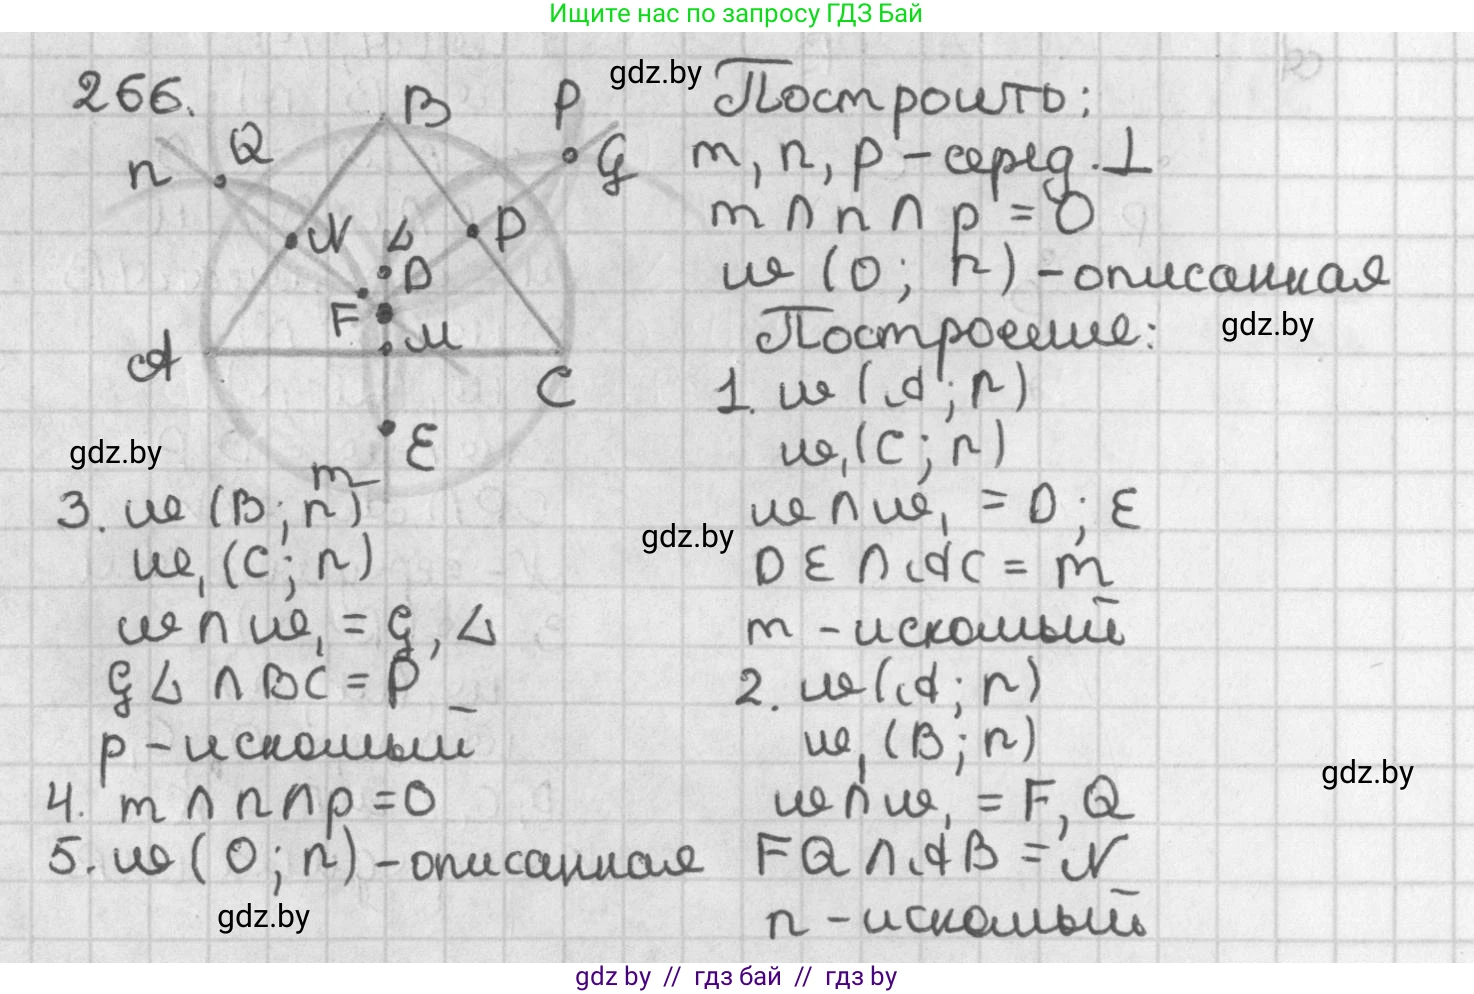 Ищите нас по запросу ГДЗ Бай
266.
B
P
Q
n
G
N
L
P
D
F
M
A
C
E
m
gdz.by
Построить:
m, n, p – серед. ⊥
m ∩ n ∩ p = O
ω (O; r) – описанная
gdz.by
Построение:
1. ω (A; r)
ω₁ (C; r)
ω ∩ ω₁ = D; E
DE ∩ AC = m
m – искомый
2. ω (A; r)
ω₁ (B; r)
ω ∩ ω₁ = F, Q
FQ ∩ AB = N
n – искомый
gdz.by
3. ω (B; r)
ω₁ (C; r)
ω ∩ ω₁ = G, L
GL ∩ BC = P
p – искомый
4. m ∩ n ∩ p = O
5. ω (O; r) – описанная
gdz.by
gdz.by
gdz.by
gdz by // гдз бай // гдз by